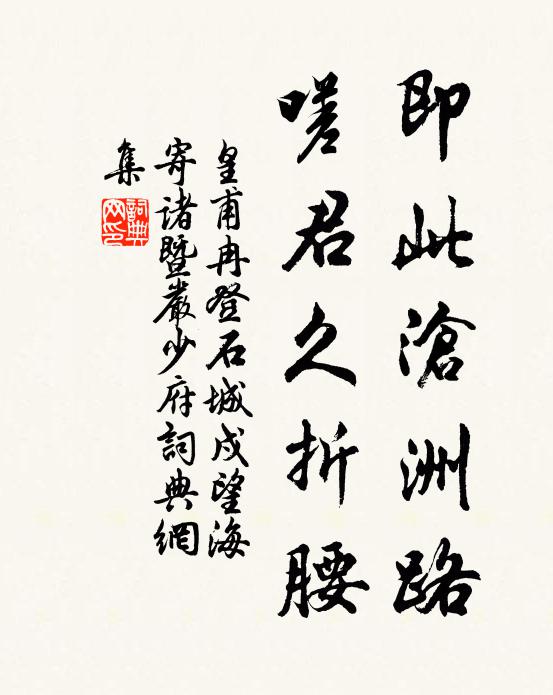 即此滄洲路
嗟君久折腰
皇甫冉登石城戍望海
寄諸暨嚴少府詞典網
集
詞典
网印